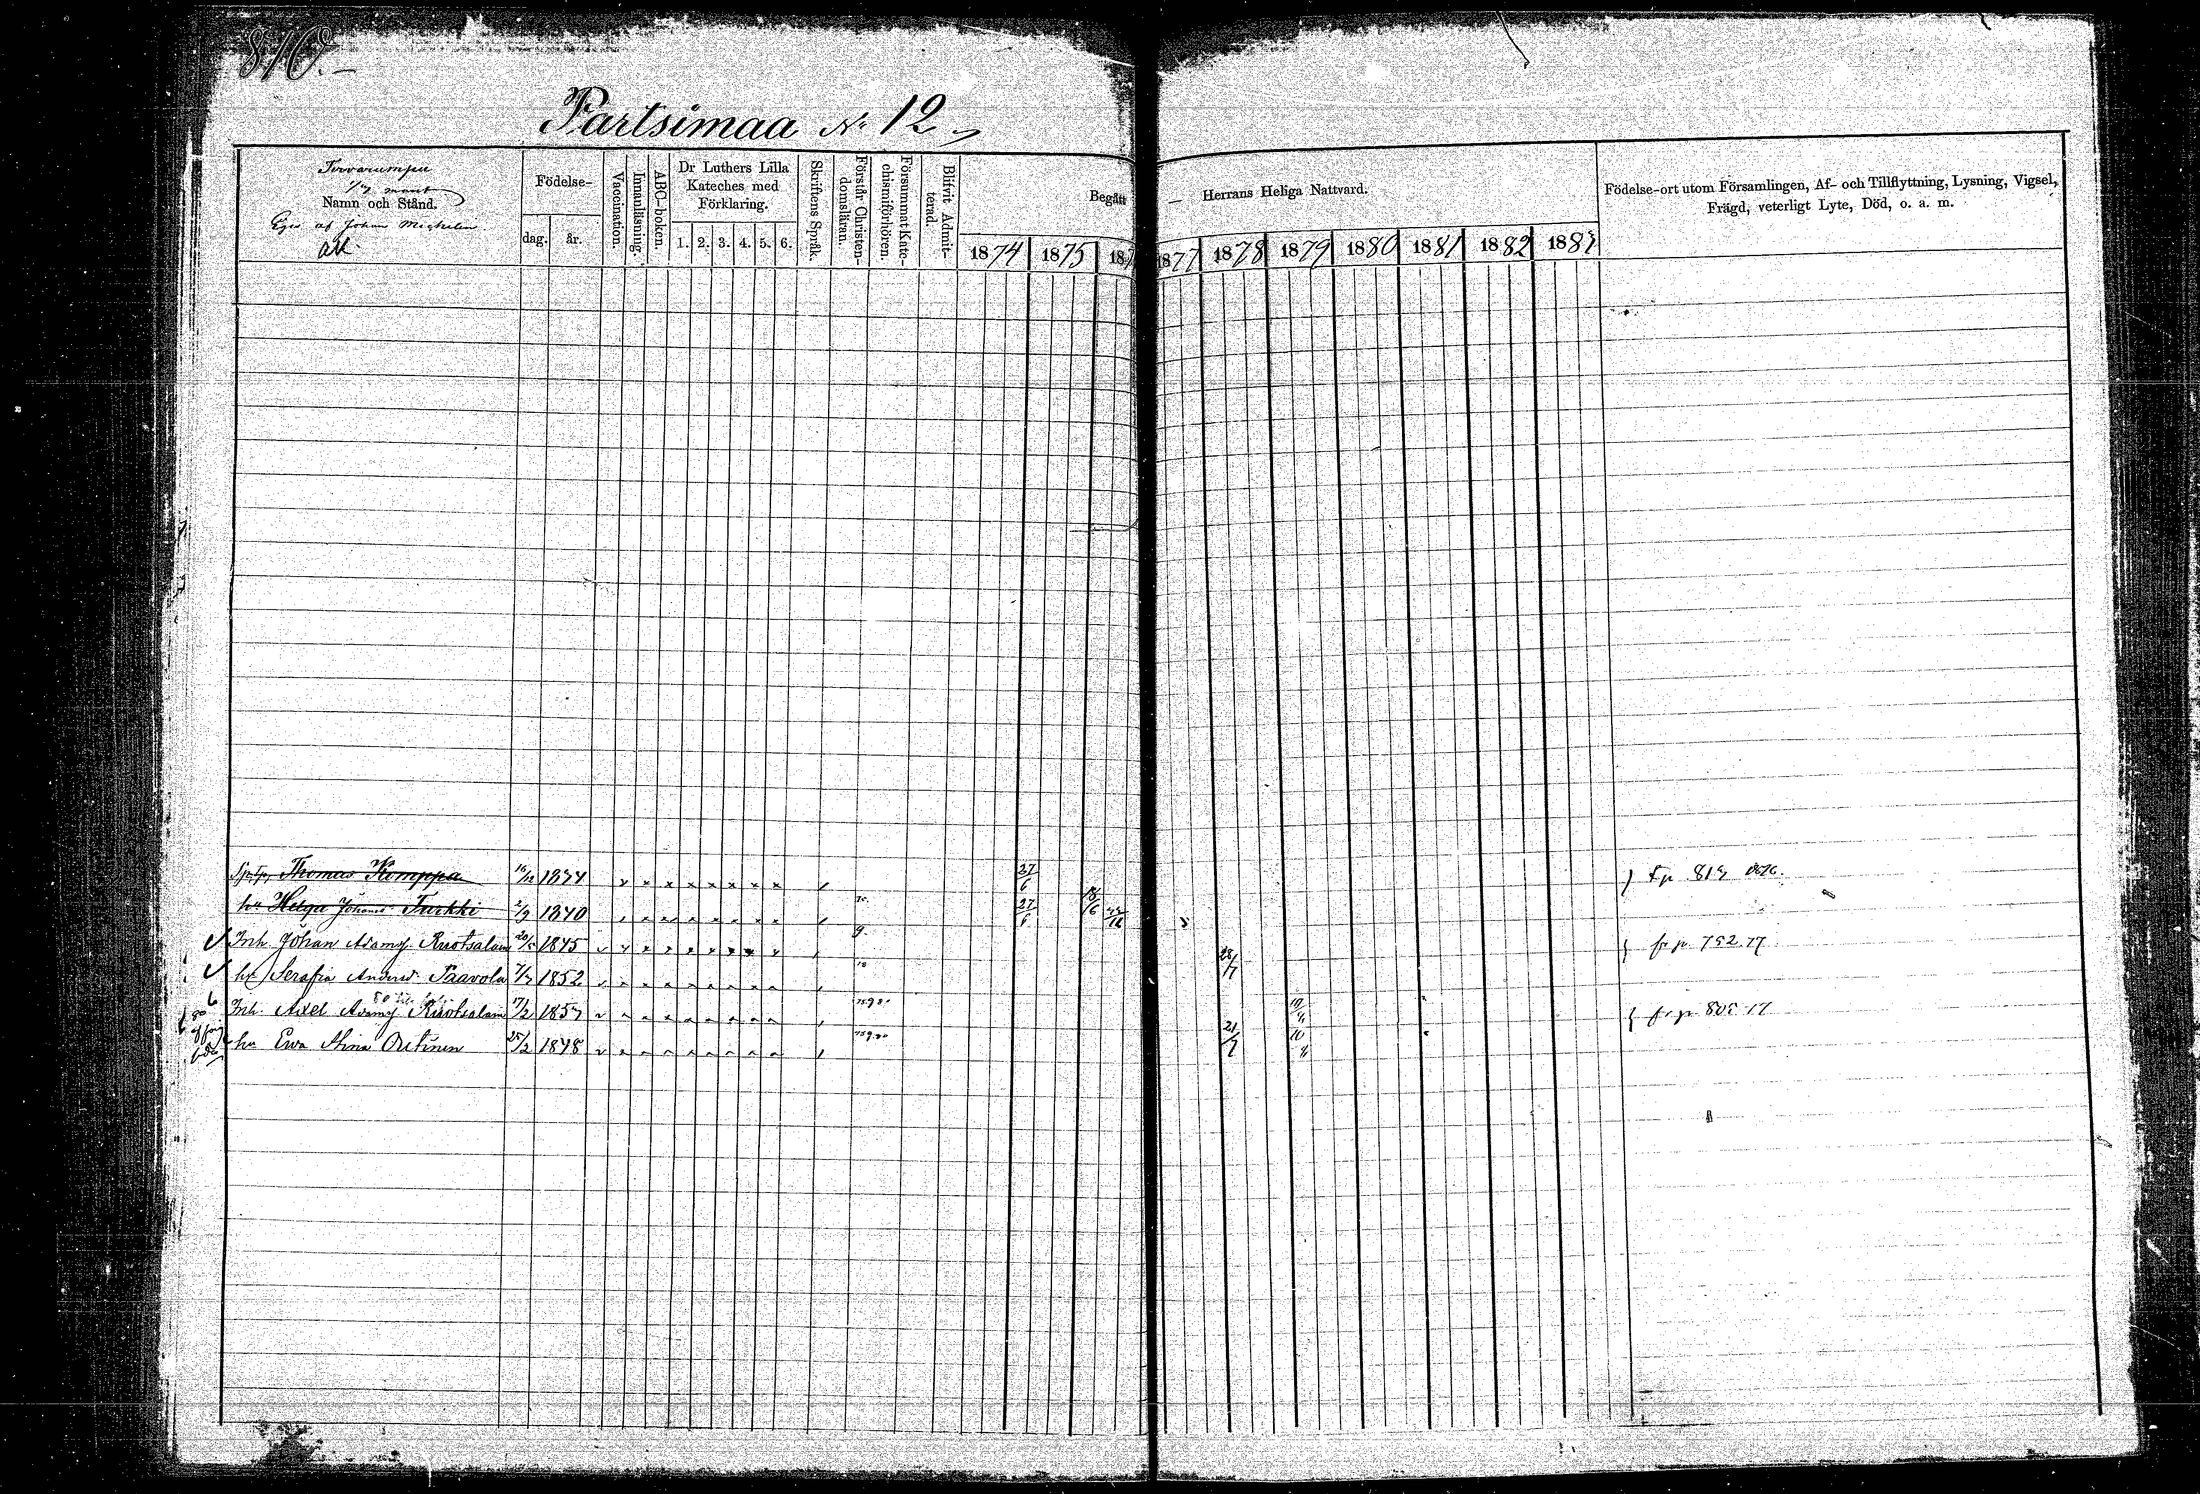 810.
Partsimaa No 12
Torvarumpu
1/7 mant
Namn och Stånd.
Eges af Johan Michelin
Födelse-
dag. år.
Vaccination.
Innanläsning.
ABC-boken.
Dr Luthers Lilla
Kateches med
Förklaring.
1. 2. 3. 4. 5. 6.
Skriftens Språk.
Förstår Christen-
domsläran.
Försummat Kate-
chismiförhören.
Blifvit Admit-
terad.
Begått — Herrans Heliga Nattvard.
1874 1875 187 1877 1878 1879 1880 1881 1882 1883
Födelse-ort utom Församlingen, Af- och Tillflyttning, Lysning, Vigsel,
Frägd, veterligt Lyte, Död, o. a. m.
Thomas Komppa 16/12 1844 27/6
hu Helga Johansd. Turkki 2/9 1840 27/6 18/6
Inh. Johan Adamsj Ruotsalain 20/5 1845 fr p. 752. 77
hu Serafia Andersd Paavola 7/7 1852 28/7
Inh. Axel Adamsj Ruotsalain 17/2 1857 10/4
hu Ewa Stina Outinen 25/2 1848 21/7 10/4